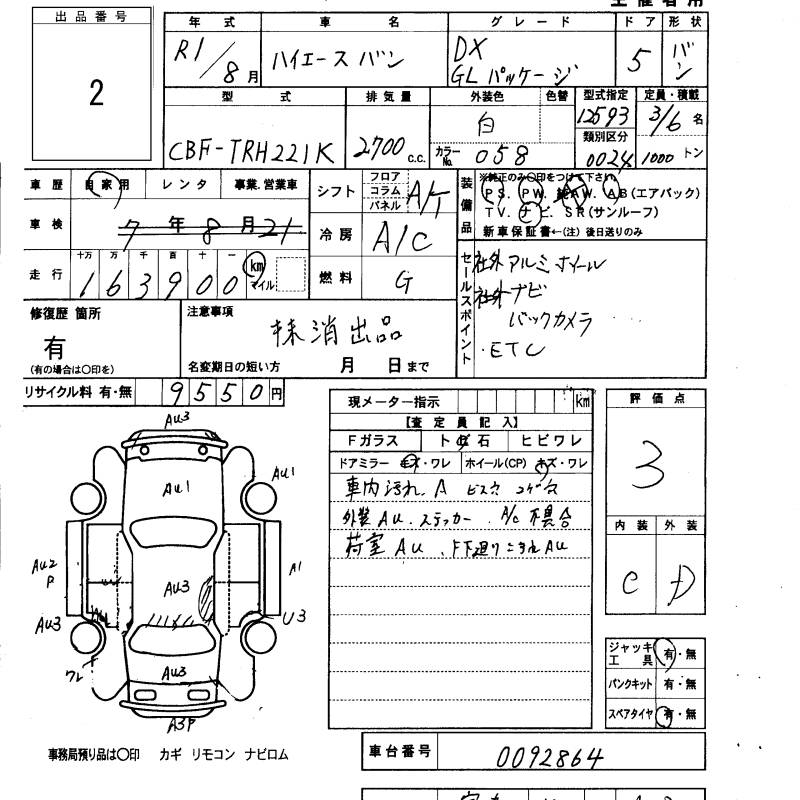 出品番号
2
年式 車名 グレード ドア 形状
R1/8月 ハイエース バン DX GL パッケージ 5 バン
型式 排気量 外装色 色替 型式指定 定員・積載
CBF-TRH221K 2700 c.c. 白 カラーNo. 058 12593 3/6 名
類別区分 0024 1000 トン
車歴 自家用 レンタ 事業.営業車
車検 7年8月21
走行 十万 万 千 百 十 一
163900 km マイル
シフト フロア コラム パネル A/T
冷房 A/C
燃料 G
装備品 ※純正のみ〇印をつけて下さい
PS. PW. 純AW. AB(エアバック)
TV. ナビ. SR(サンルーフ)
新車保証書←(注) 後日送りのみ
セールスポイント
社外アルミホイール
社外ナビ
バックカメラ
・ETC
修復歴 箇所
有
(有の場合は〇印を)
注意事項
抹消出品
名変期日の短い方 月 日まで
リサイクル料 有・無 9550円
現メーター指示 km
【査定員記入】
Fガラス トビ石 ヒビワレ
ドアミラー キズ・ワレ ホイール(CP) キズ・ワレ
車内汚れ.A ビス穴 コゲ穴
外装AU.ステッカー.A/C不具合
荷室AU.F下廻りこすれAU
評価点
3
内装 外装
C D
AU3
AU1
AU1
AU2
P
AU3
A1
AU
AU3
U3
ワレ
AU3
A3P
ジャッキ工具 有・無
パンクキット 有・無
スペアタイヤ 有・無
事務局預り品は〇印 カギ リモコン ナビロム
車台番号 0092864